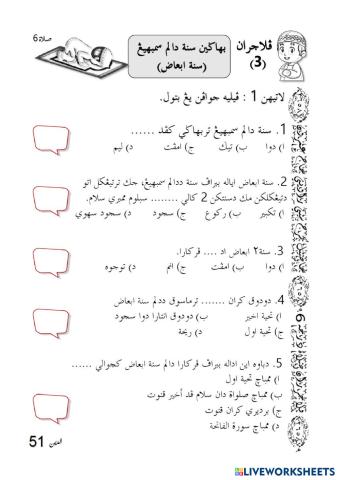 صلاة 6
ڤلاجرن
(3)
بهاݢين سنة دالم سمبهيڠ
(سنة ابعاض)
لاتيهن 1 : ڤيليه جواڤن يڠ بتول.
1. سنة دالم سمبهيڠ تربهاݢي كڤد ......
ا) دوا ب) تيݢ ج) امڤت د) ليم
2. سنة ابعاض اياله بيراڤ سنة ددالم سمبهيڠ، جك ترتيڠݢل اتو
دتيڠݢلكن مك دسنتكن 2 كالي ........ سبلوم ممبري سلام.
ا) تكبير ب) ركوع ج) سجود د) سجود سهوي
3. سنة٢ ابعاض اد .... ڤركارا.
ا) دوا ب) امڤت ج) انم د) توجوه
4. دودوق كران ....... ترماسوق ددالم سنة ابعاض
ا) تحية اخير ب) دودوق انتارا دوا سجود
ج) تحية اول د) ريحة
5. دباوه اين اداله بيراڤ ڤركارا دالم سنة ابعاض كچوالي ......
ا) ممباچ تحية اول
ب) ممباچ صلوات دان سلام ڤد أخير قنوت
ج) برديري كران قنوت
د) ممباچ سورة الفاتحة
51
LIVEWORKSHEETS